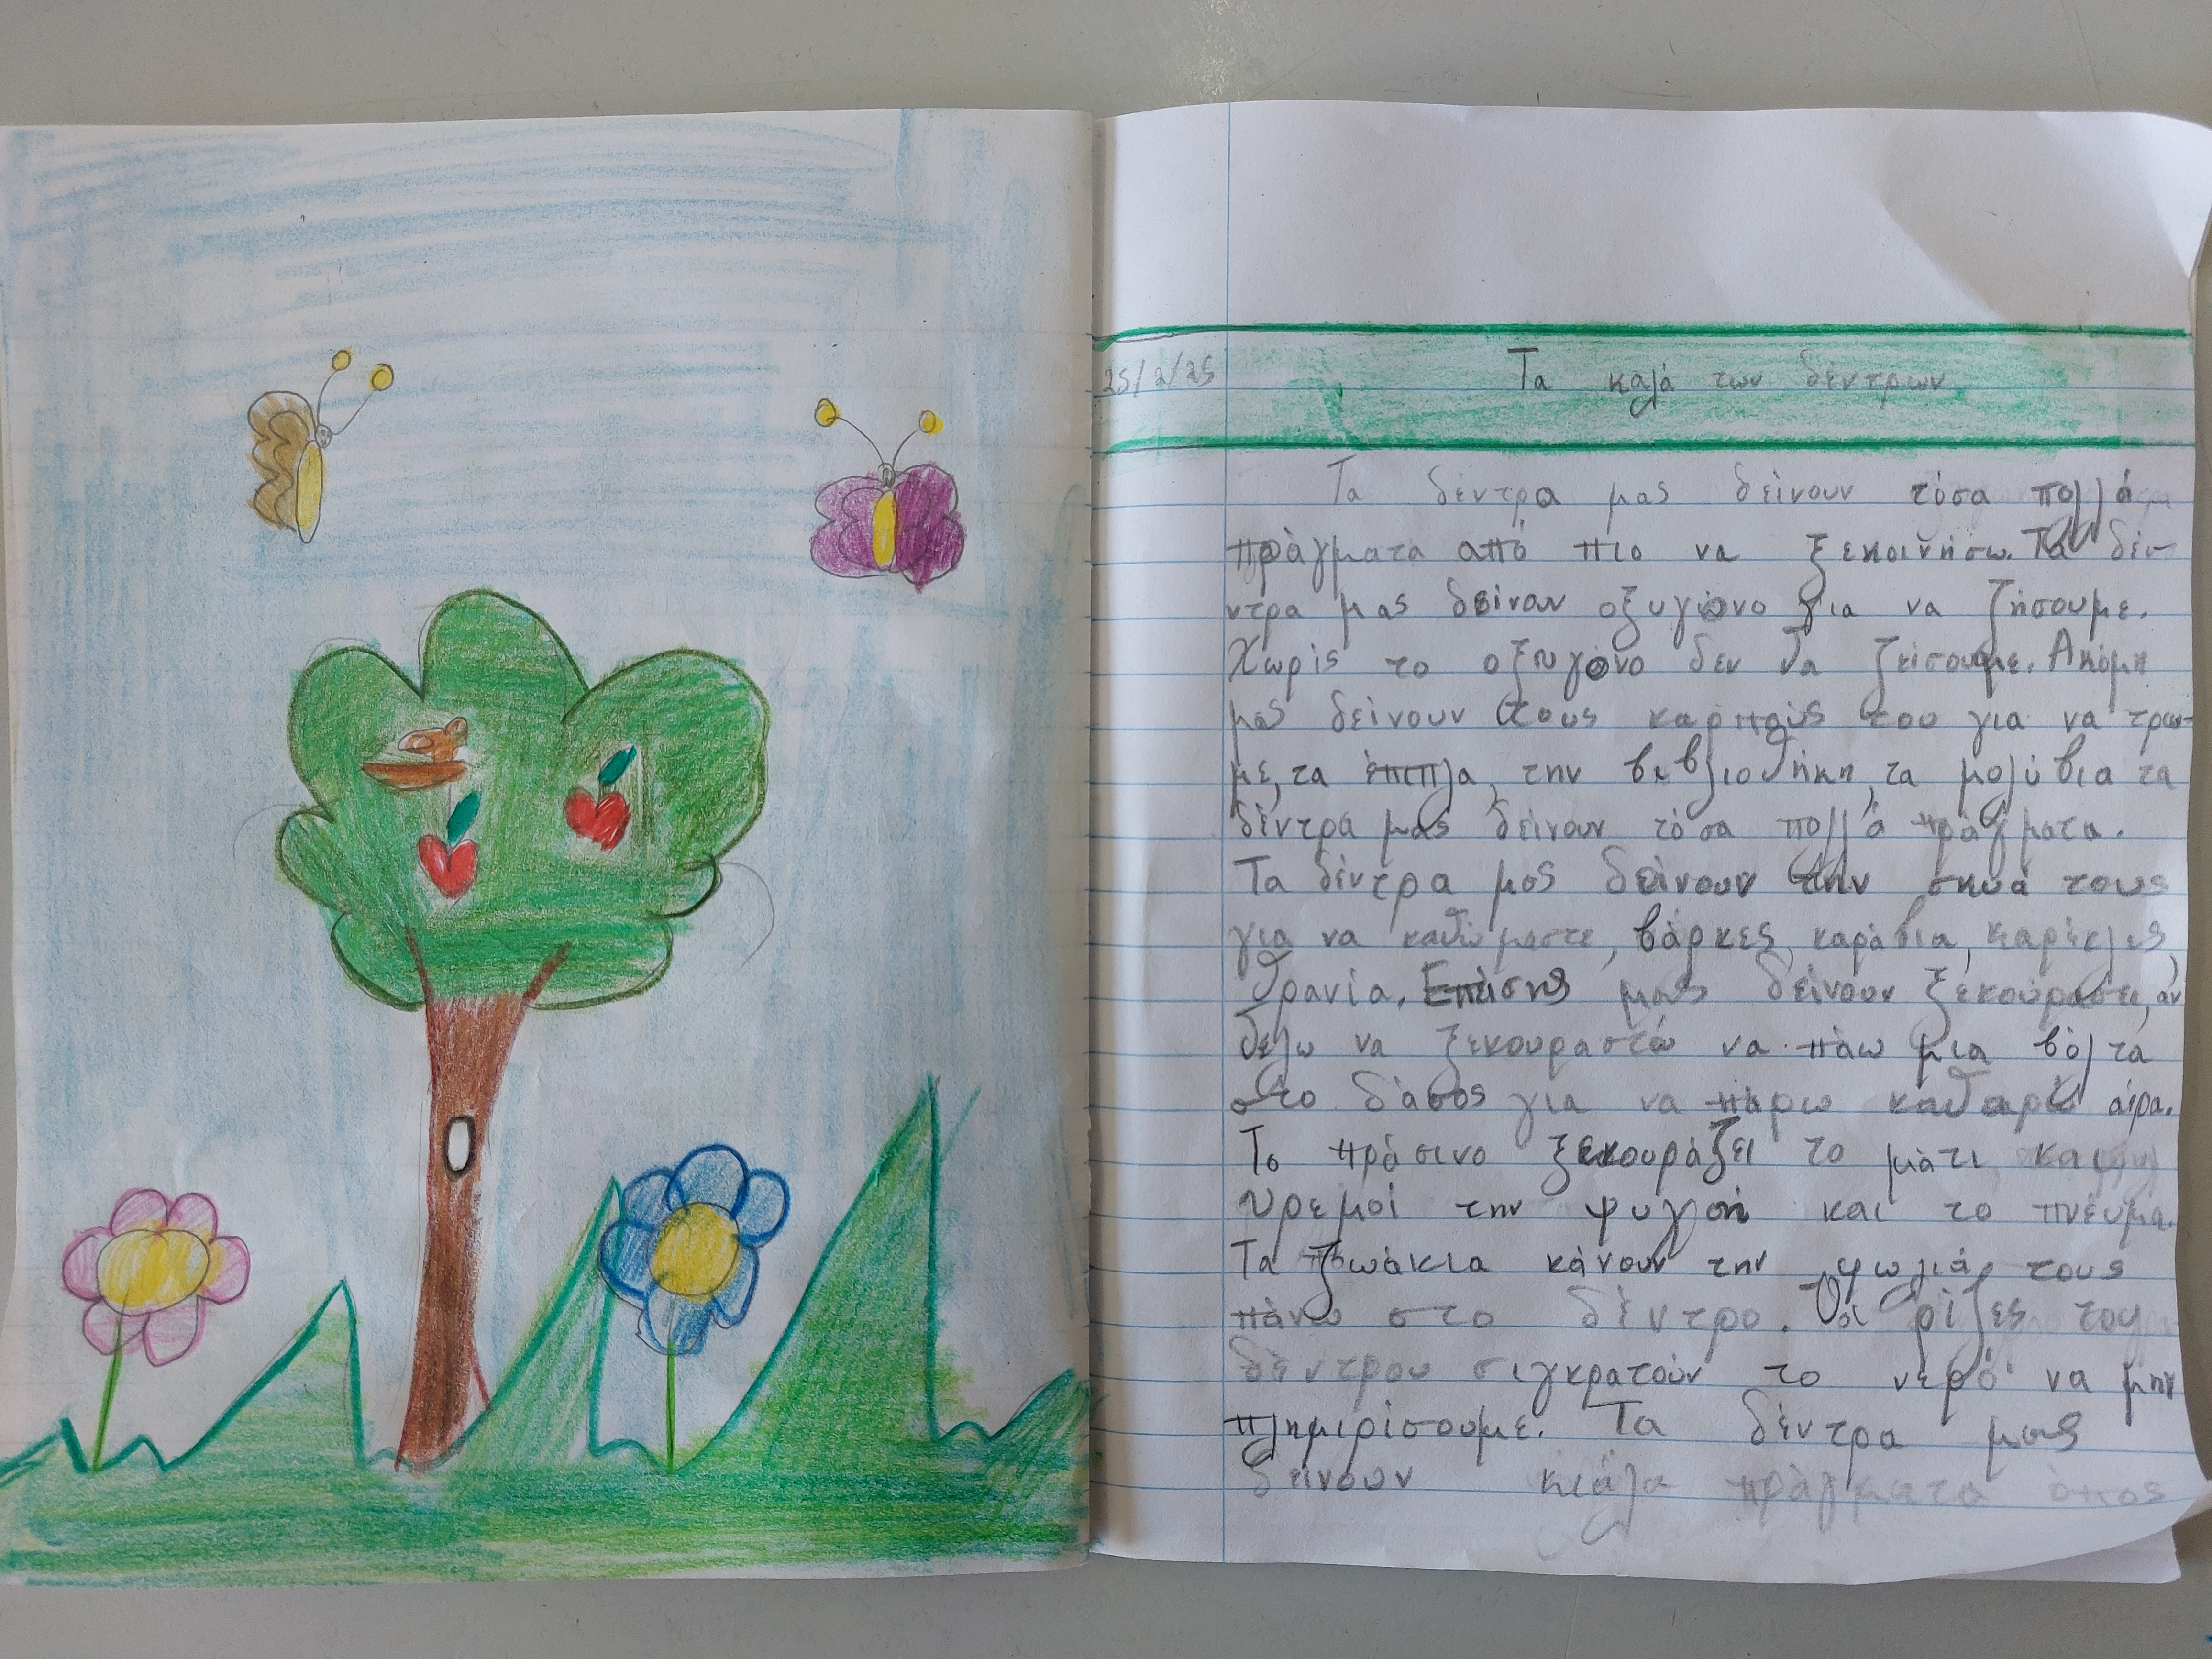 25/2/25
Τα καλά των δέντρων
Τα δέντρα μας δείνουν τόσα πολλά
πράγματα από πιο να ξεκοινήσω. Τα δέ-
ντρα μας δείνουν οξυγόνο για να ζήσουμε.
Χωρίς το οξυγόνο δεν θα ζείσουμε. Ακόμη
μας δείνουν τους καρπούς του για να τρώ-
με, τα έπιπλα, την βιβλιοθήκη, τα μολύβια τα
δέντρα μας δείνουν τόσα πολλά πράγματα.
Τα δέντρα μας δείνουν την σκιά τους
για να καθόμαστε, βάρκες, καράβια, καρέκλες,
θρανία. Επίσης μας δείνουν ξεκούραση, αν
θέλω να ξεκουραστώ να πάω μια βόλτα
στο δάσος για να πάρω καθαρό αέρα.
Το πράσινο ξεκουράζει το μάτι και
υρεμοί την ψυχή και το πνεύμα.
Τα ζωάκια κάνουν την φωλιά τους
πάνω στο δέντρο. Οι ρίζες του
δέντρου σιγκρατούν το νερό να μην
πλημιρίσουμε. Τα δέντρα μας
δείνουν κιάλα πράγματα όπος